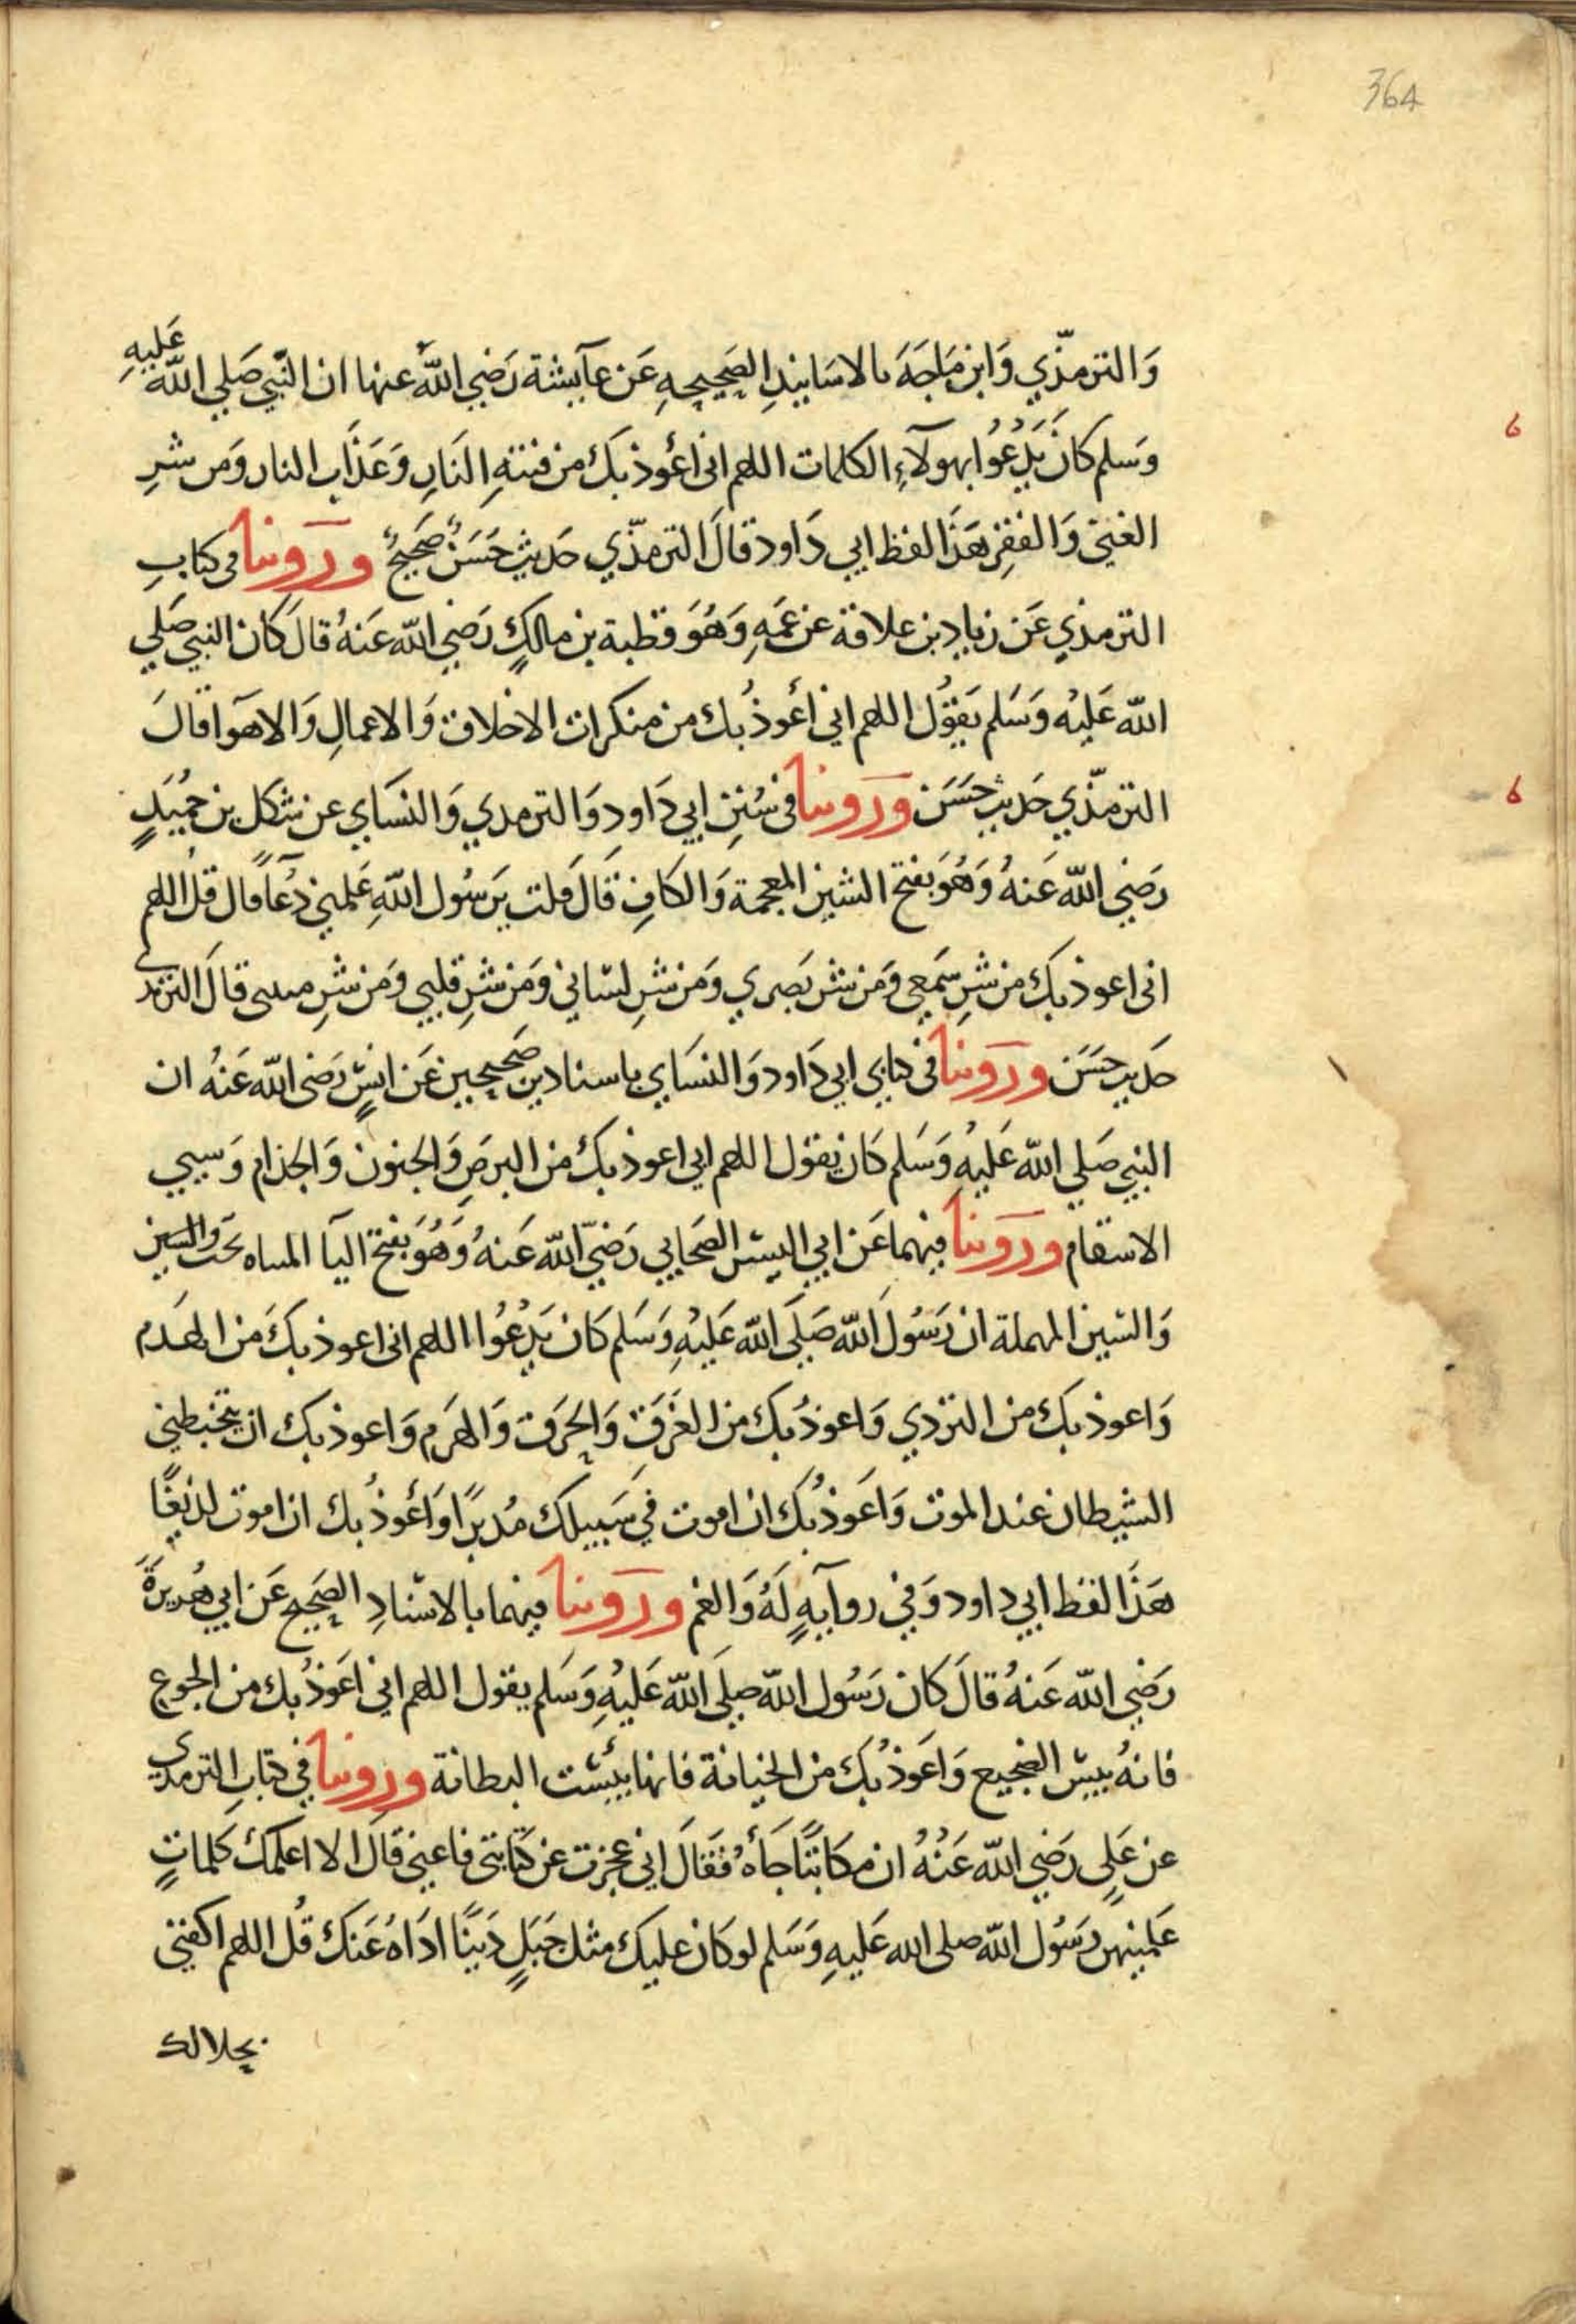 364
وَالترمذّي وَابن مَاجَهَ بالاسَانيدِ الصَحِيحِهِ عَن عآيشة رَضِي اللهُ عنها ان النَّبي صَلي الله عَليهِ
وَسَلم كانَ يَدْعُوُا بهولآءِ الكلمات اللهم انى أعُوذ بكَ من فتنهِ النَارِ وَعَذَابِ النار وَمن شرِ
الغنيَ وَالفقرِ هَذَا لفظ ابي دَاود قالَ الترمذّي حَديثٌ حَسَنٌ صَحِيحٌ وروينا فى كتابِ
الترمذي عَن زيادِ بن علاقة عن عَمهِ وَهُوَ قطبة بن مالكٍ رَضِي الله عَنهُ قالَ كانَ النبي صَلي
الله عَليْه وَسَلم يَقوُل اللهم اني أعُوذُ بك من منكرات الاخلاق وَالاعمالِ وَالاهَوا قالَ
الترمذّي حَديث حَسَن وروينا فى سُنَنِ ابي دَاودِ وَالترمدي وَالنسَاي عن شكل بن حُمَيدٍ
رَضِي الله عَنهُ وَهُوَ بفتح الشين المعجمة وَالكافِ قَالَ قلت يَرسُول اللهِ عَلمني دُعَآً قال قل اللهم
انى اعوذ بكَ من شرِ سَمعِي وَمن شر بَصري وَمن شرِ لسَاني وَمن شرِ قلبي وَمن شرِ منيى قالَ الترمذى
حَديث حَسَن وروينا فى كتابي ابي دَاود وَالنسَاي باسنادين صَحيحين عَن انسٍ رَضى الله عَنهُ ان
النبي صَلي الله عَليْهِ وَسَلم كانَ يقوُل اللهم اني اعوذ بكَ من البرَصِ وَالجنون وَالجذامِ وَسيي
الاسقام وروينا فيهما عَن ابي اليسر الصَحَابي رَضِيَ الله عَنهُ وَهُوَ بفتح اليآ المثناه تحت والسين
وَالسين المهملة ان رَسُولَ الله صَلَى الله عَليْهِ وَسَلم كانَ يَدْعُوُا اللهم انى اعوذ بكَ من الهَدَم
وَاعوذ بكَ من التردي وَاعوذُ بكَ من الغَرَقِ وَالحَرَقِ وَالهَرَمِ وَاعوذ بكَ ان يتخبطني
الشيطان عند الموت وَاعَوذُ بكَ ان اموت فِي سَبيلكَ مُدبرًا وَأعُوذُ بك ان اموت لديغًا
هَذَا لفظ ابي داود وَفي روآيهٍ لَهُ وَالغم وروينا فيهما بالاسنادِ الصَحِيح عَن ابي هُرَيرَةَ
رَضِي الله عَنهُ قالَ كان رَسُول الله صَلَى الله عَليْهِ وَسَلم يقول اللهم اني اعَوذُ بك من الجوع
فانهُ بيسَ الضجيع وَاعَوذُ بكَ من الخيانة فانها بئيست البطانة وروينا في كتابِ الترمدي
عن عَلي رَضِي الله عَنْهُ ان مكاتبًا جَأَهُ فَقَالَ اني عجزت عن كتابتي فاعني قالَ الا اعلمكَ كلماتٍ
عَلمنيهن رَسُول الله صلى الله عَليهِ وَسَلم لو كان عليكَ مثل جَبَلٍ دَيْنًا ادَاهُ عَنكَ قُل اللهم اكفني
بحلالك